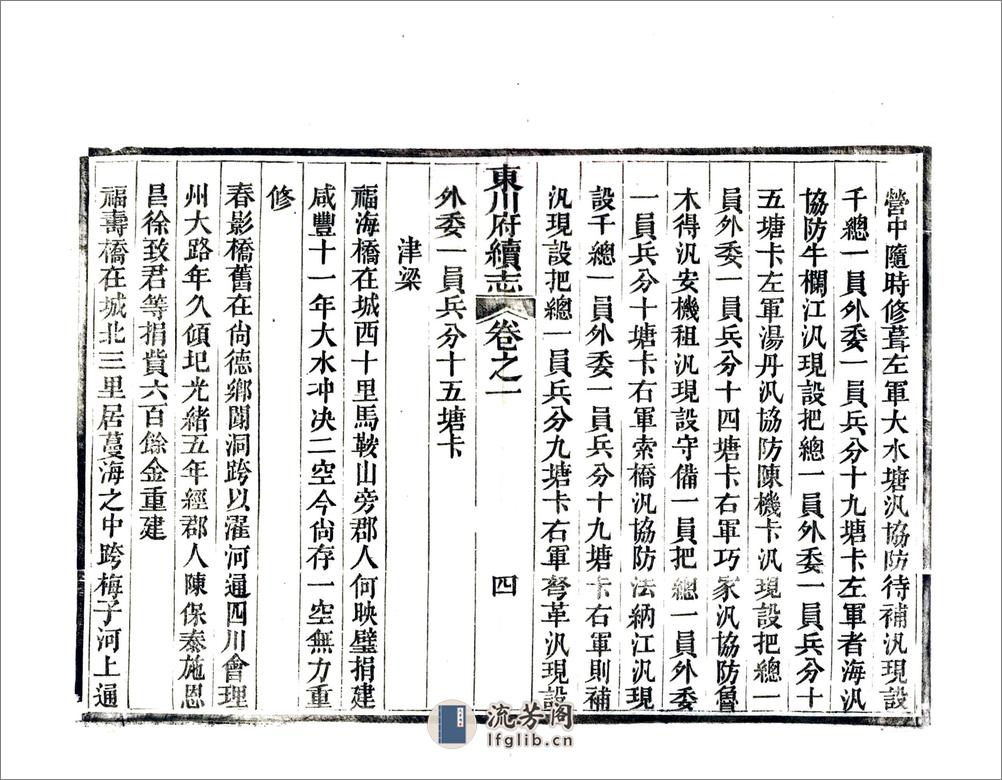 營中隨時修葺左軍大水塘汛協防待補汛現設
千總一員外委一員兵分十九塘卡左軍者海汛
協防牛欄江汛現設把總一員外委一員兵分十
五塘卡左軍湯丹汛協防陳機卡汛現設把總一
員外委一員兵分十四塘卡右軍巧家汛協防魯
木得汛安機租汛現設守備一員把總一員外委
一員兵分十塘卡右軍索橋汛協防法納江汛現
設千總一員外委一員兵分十九塘卡右軍則補
汛現設把總一員兵分九塘卡右軍弩革汛現設
東川府續志 卷之一 四
外委一員兵分十五塘卡
津梁
福海橋在城西十里馬鞍山旁郡人何映璧捐建
咸豐十一年大水冲决二空今尙存一空無力重
修
春影橋舊在尙德鄉闌洞跨以濯河通四川會理
州大路年久傾圯光緒五年經郡人陳保泰施恩
昌徐致君等捐貲六百餘金重建
福壽橋在城北三里居蔓海之中跨梅子河上通
流芳阁
lfglib.cn